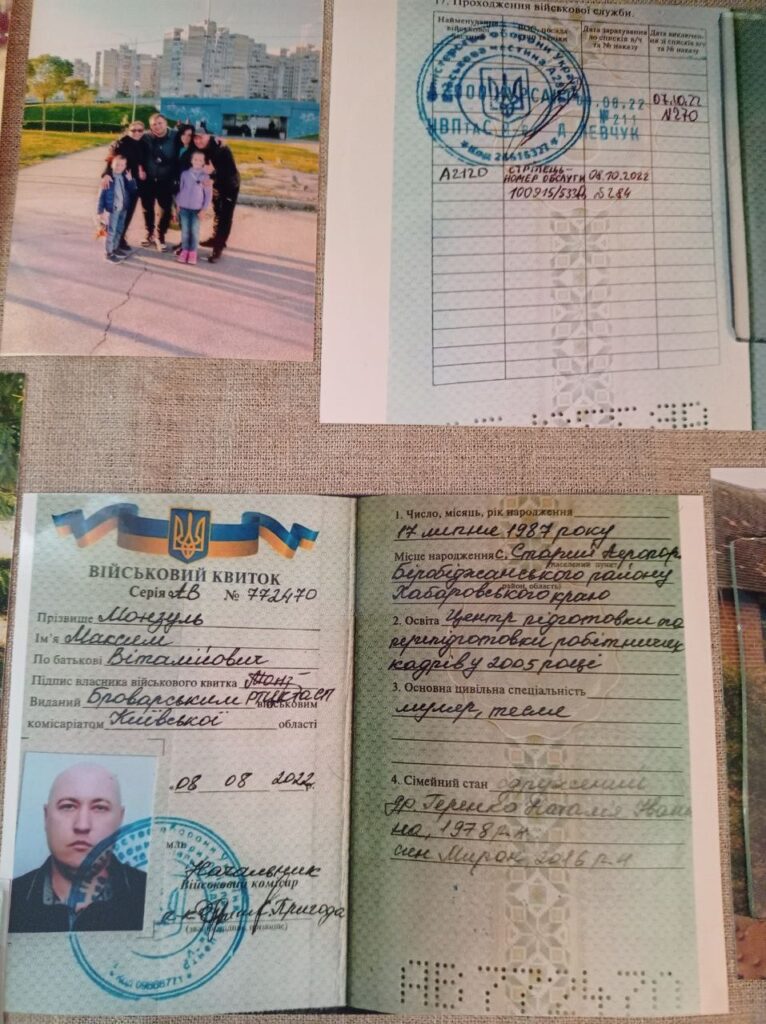 17. Проходження військової служби.
Найменування військової
ВОС, посада
Дата зарахування до списків в/ч та № наказу
Дата виключення зі списків в/ч та № наказу
Міністерство оборони України
військова частина
08.22
№ 211
07.10.22
№270
А.ЛЕВЧУК
А2120
СТРІЛЕЦЬ-
НОМЕР ОБСЛУГИ
100915/533Д
08.10.2022
№284
ВІЙСЬКОВИЙ КВИТОК
Серія АВ № 772470
Прізвище Монзуль
Ім'я Максим
По батькові Віталійович
Підпис власника військового квитка
Виданий Броварським РТЦКтаСП військовим
комісаріатом Київської області
„08 08 2022
МПВ
Начальник
Військовий комісар
Пригода
1. Число, місяць, рік народження
17 липня 1987 року
Місце народження с. Старий Аеропор
Біробіджанського району
Хабаровського краю
2. Освіта Центр підготовки та
перепідготовки робітничих
кадрів у 2005 році
3. Основна цивільна спеціальність
муляр, тесля
4. Сімейний стан одружений
др. Геренко Наталія Іван
на, 1978 р.н
син Мирон 2016 р.н
АВ 772470